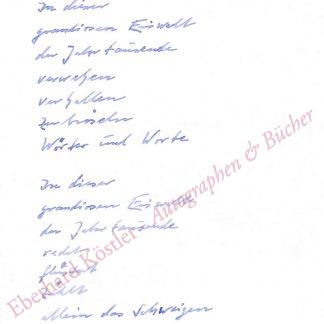 In dieser
grandiosen Eiswelt
der Jahrtausende
verwehen
verhallen
zerbröseln
Wörter und Worte
In dieser
grandiosen Eiswelt
der Jahrtausende
redet
flüstert
allein das Schweigen
Eberhard Köstler - Autographen & Bücher